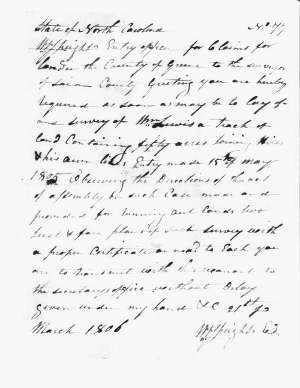 State of North Carolina No 77
Wm Speight Entry officer for Claims for
land in the County of Greene to the surveyor
of said County Greeting you are hereby
required as soon as may be to lay off
and survey of Wm Lewis a track of
land Containing fifty acres joining
& his own Entry made 15th May
1805 Observing the Directions of the act
of assembly in such Case made and
provided for running out Lands two
Just & fair plans of such survey with
a proper Certificate annexd to Each you
are to transmit with this warrant to
the secretarys office without Delay
given under my hand &C 21st
March 1806 Speight E.T.